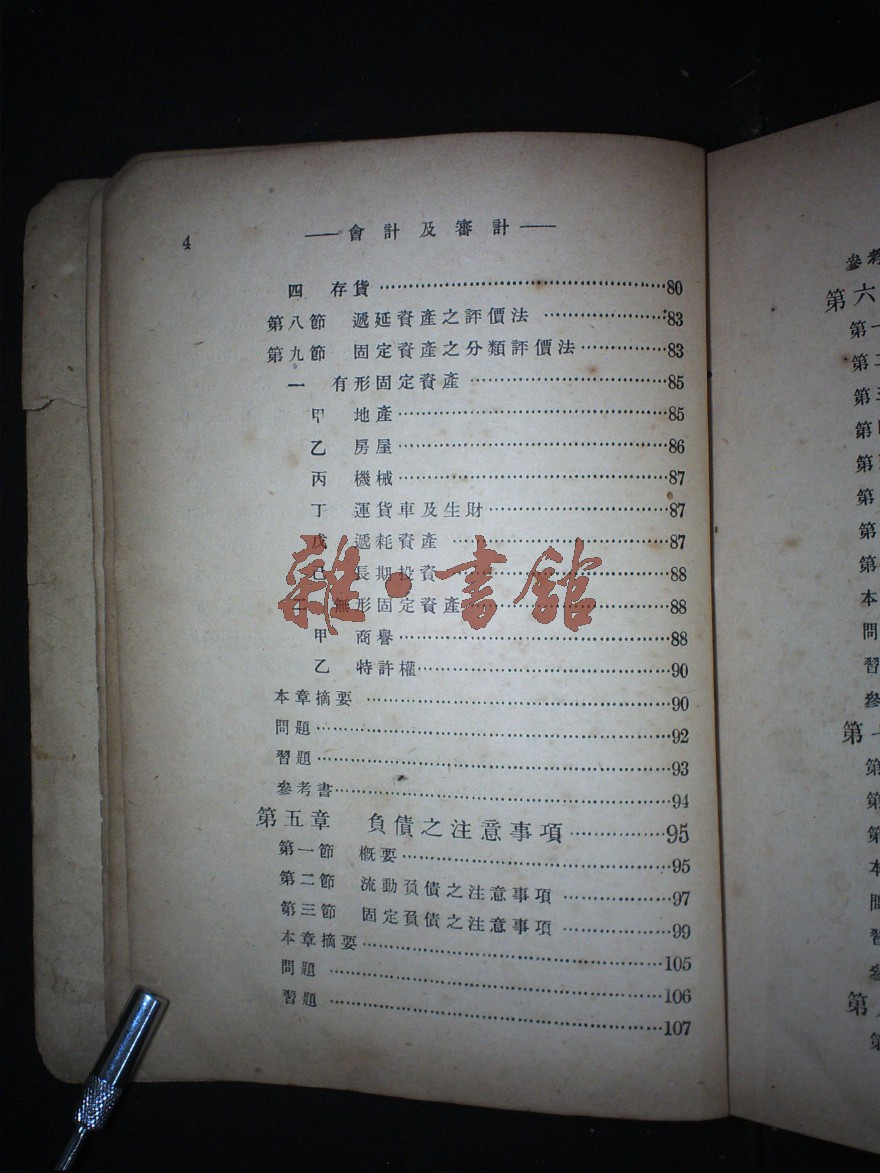 4
會計及審計
四 存貨 80
第八節 遞延資產之評價法 83
第九節 固定資產之分類評價法 83
一 有形固定資產 85
甲 地產 85
乙 房屋 86
丙 機械 87
丁 運貨車及生財 87
戊 遞耗資產 87
己 長期投資 88
二 無形固定資產 88
甲 商譽 88
乙 特許權 90
本章摘要 90
問題 92
習題 93
參考書 94
第五章 負債之注意事項 95
第一節 概要 95
第二節 流動負債之注意事項 97
第三節 固定負債之注意事項 99
本章摘要 105
問題 106
習題 107
雜·書館
參考
第六
第一
第二
第三
第四
第
第
第
第
本
問
習
參
第
第
第
第
本
問
習
參
第
第